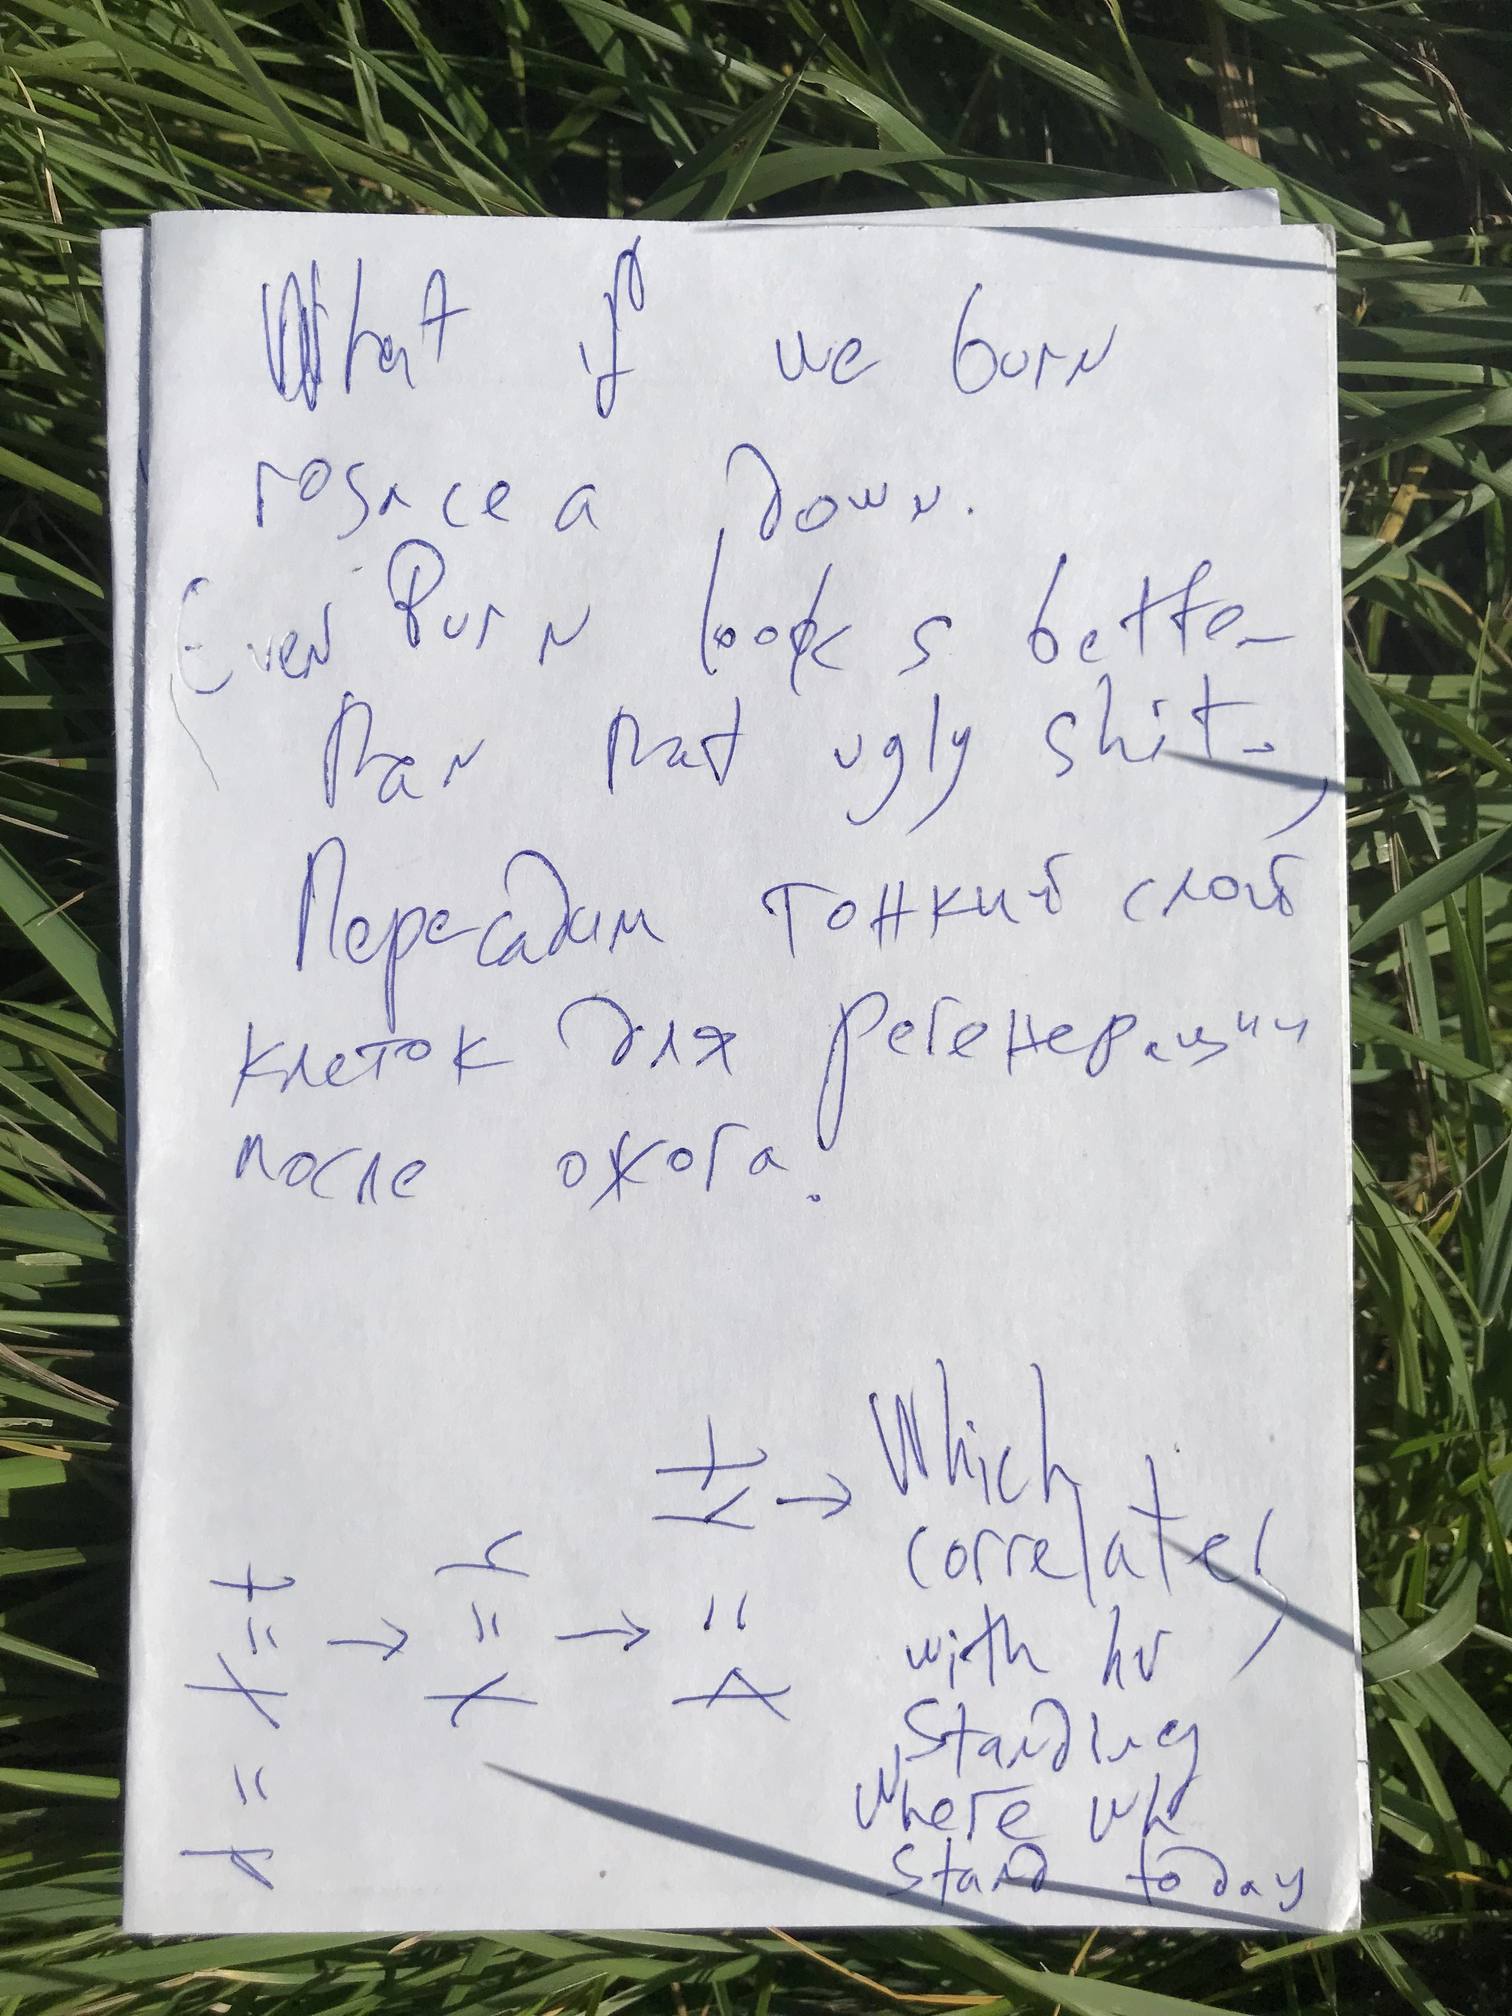 What if we burn
rosacea down.
Even Burn looks better
Than That ugly shit,
Пересадим тонкий слой
клеток для регенерации
после ожога.
Which
correlates
with hv
Standing
where wh
stand today